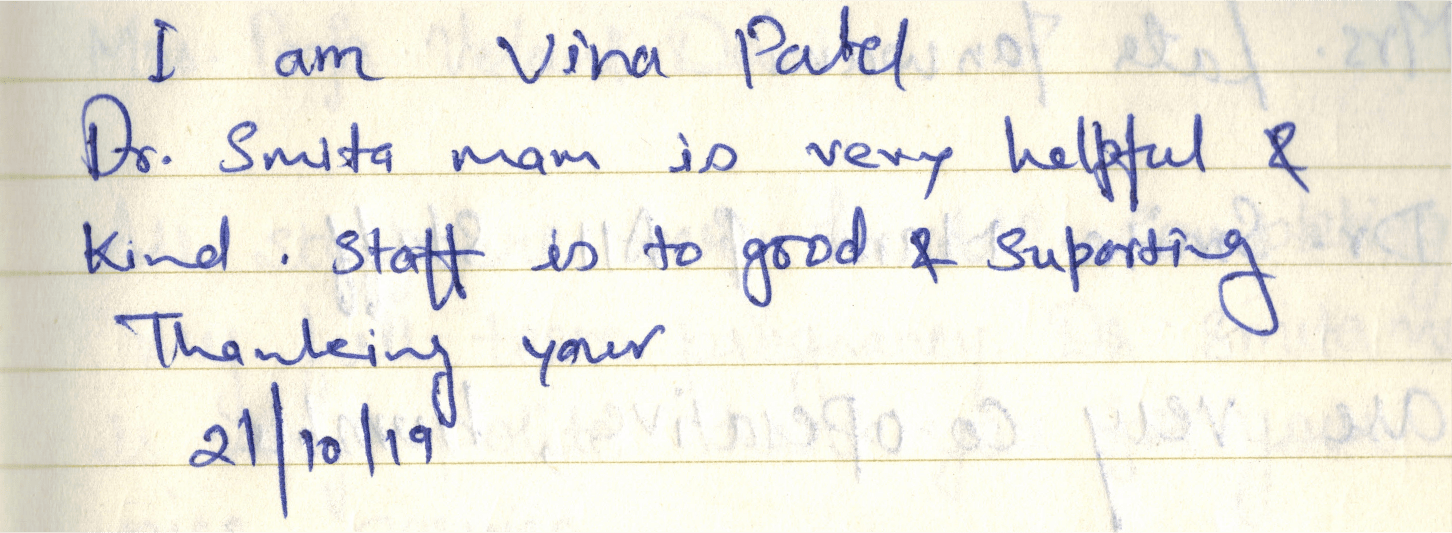 I am Vina Patel
Dr. Smita mam is very helpful &
Kind. Staff is to good & Suporting
Thanking your
21/10/19